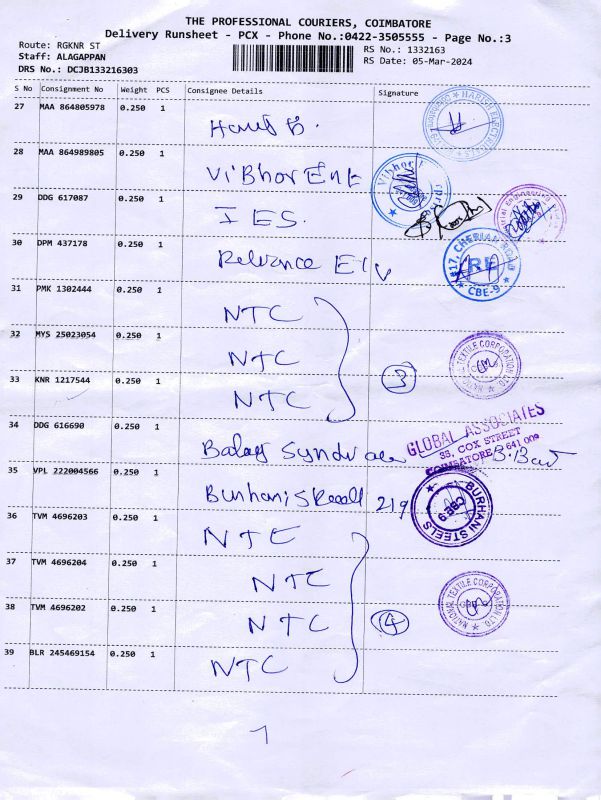 THE PROFESSIONAL COURIERS, COIMBATORE
Delivery Runsheet - PCX - Phone No.:0422-3505555 - Page No.:3
Route: RGKNR ST
RS No.: 1332163
Staff: ALAGAPPAN
RS Date: 05-Mar-2024
DRS No.: DCJB133216303
S No Consignment No Weight PCS Consignee Details Signature
27 MAA 864805978 0.250 1
28 MAA 864989805 0.250 1 Vibhor Ent
Vibhor
29 DDG 617087 0.250 1 IES.
30 DPM 437178 0.250 1
#17, CHERIAN ROAD
RE
CBE-9
31 PMK 1302444 0.250 1 NTC
32 MYS 25023054 0.250 1 NTC
NATIONAL TEXTILE CORPORATION LTD.
33 KNR 1217544 0.250 1 NTC 3
34 DDG 616690 0.250 1
GLOBAL ASSOCIATES
33, COX STREET
COIMBATORE 641 009
35 VPL 222004566 0.250 1 219
BURHANI STEELS
CBE-9
36 TVM 4696203 0.250 1 NTC
37 TVM 4696204 0.250 1 NTC
NATIONAL TEXTILE CORPORATION LTD.
38 TVM 4696202 0.250 1 NTC 4
39 BLR 245469154 0.250 1 NTC